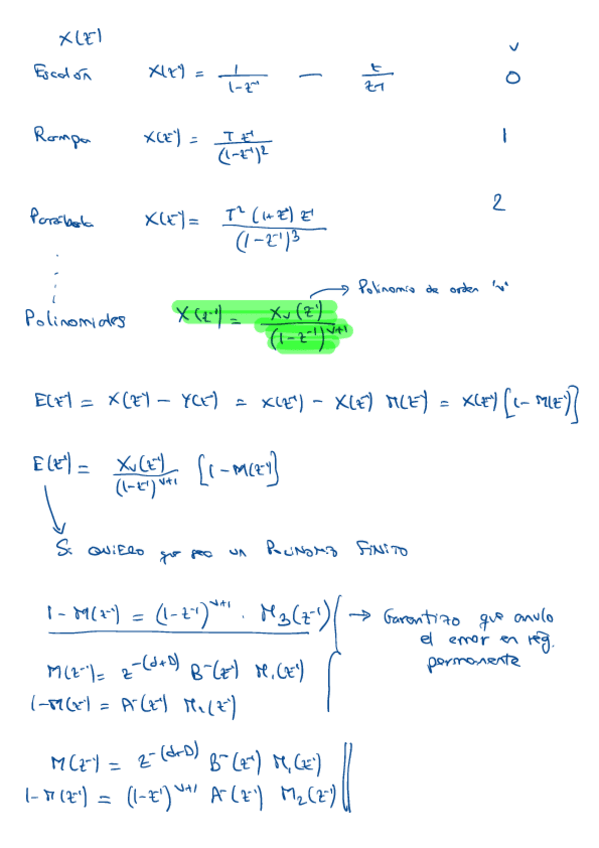 X(z⁻¹)
v
Escalón X(z⁻¹) = 1/(1-z⁻¹) — z/(z-1) 0
Rampa X(z⁻¹) = T z⁻¹/(1-z⁻¹)² 1
Parábola X(z⁻¹) = T² (1+z⁻¹) z⁻¹/(1-z⁻¹)³ 2
→ Polinomio de orden "v"
Polinomiales X(z⁻¹) = Xᵥ(z⁻¹)/(1-z⁻¹)ᵛ⁺¹
E(z⁻¹) = X(z⁻¹) - Y(z⁻¹) = X(z⁻¹) - X(z⁻¹) M(z⁻¹) = X(z⁻¹) [1 - M(z⁻¹)]
E(z⁻¹) = Xᵥ(z⁻¹)/(1-z⁻¹)ᵛ⁺¹ [1 - M(z⁻¹)]
Si QUIERO que sea UN POLINOMIO FINITO
1 - M(z⁻¹) = (1-z⁻¹)ᵛ⁺¹ · M₃(z⁻¹) → Garantizo que anulo
el error en rég.
permanente
M(z⁻¹) = z⁻⁽ᵈ⁺ᴰ⁾ B⁻(z⁻¹) M₁(z⁻¹)
1-M(z⁻¹) = A⁻(z⁻¹) M₂(z⁻¹)
M(z⁻¹) = z⁻⁽ᵈ⁺ᴰ⁾ B⁻(z⁻¹) M₁(z⁻¹)
1-M(z⁻¹) = (1-z⁻¹)ᵛ⁺¹ A⁻(z⁻¹) M₂(z⁻¹)